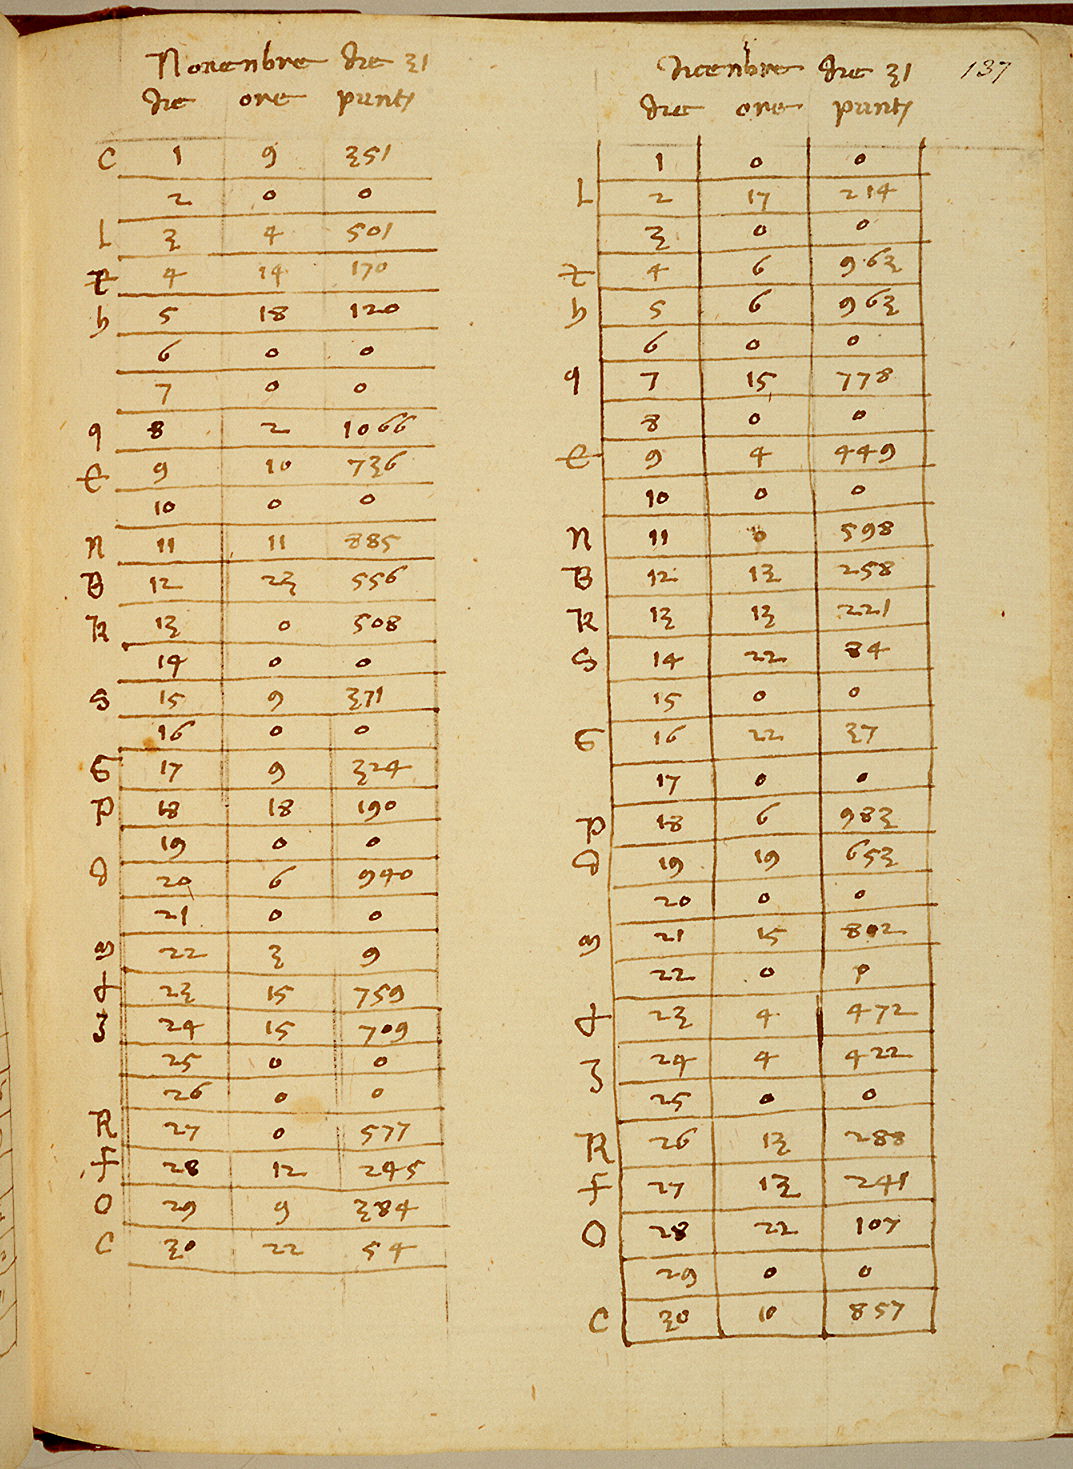 Novenbre die 31
die ore punti
C 1 9 351
2 0 0
L 3 4 501
t 4 14 170
h 5 18 120
6 0 0
7 0 0
q 8 2 1066
e 9 10 736
10 0 0
N 11 11 885
B 12 23 556
K 13 0 508
14 0 0
S 15 9 371
16 0 0
G 17 9 324
P 18 18 190
19 0 0
d 20 6 940
21 0 0
m 22 3 9
23 15 759
3 24 15 709
25 0 0
26 0 0
R 27 0 577
F 28 12 245
O 29 9 384
C 30 22 54
dicenbre die 31 137
die ore punti
1 0 0
L 2 17 214
3 0 0
t 4 6 963
h 5 6 963
6 0 0
q 7 15 778
8 0 0
e 9 4 449
10 0 0
N 11 0 598
B 12 13 258
K 13 13 221
S 14 22 84
15 0 0
G 16 22 37
17 0 0
P 18 6 983
d 19 19 653
20 0 0
m 21 15 802
22 0 0
23 4 472
3 24 4 422
25 0 0
R 26 13 288
F 27 13 241
O 28 22 107
29 0 0
C 30 10 857